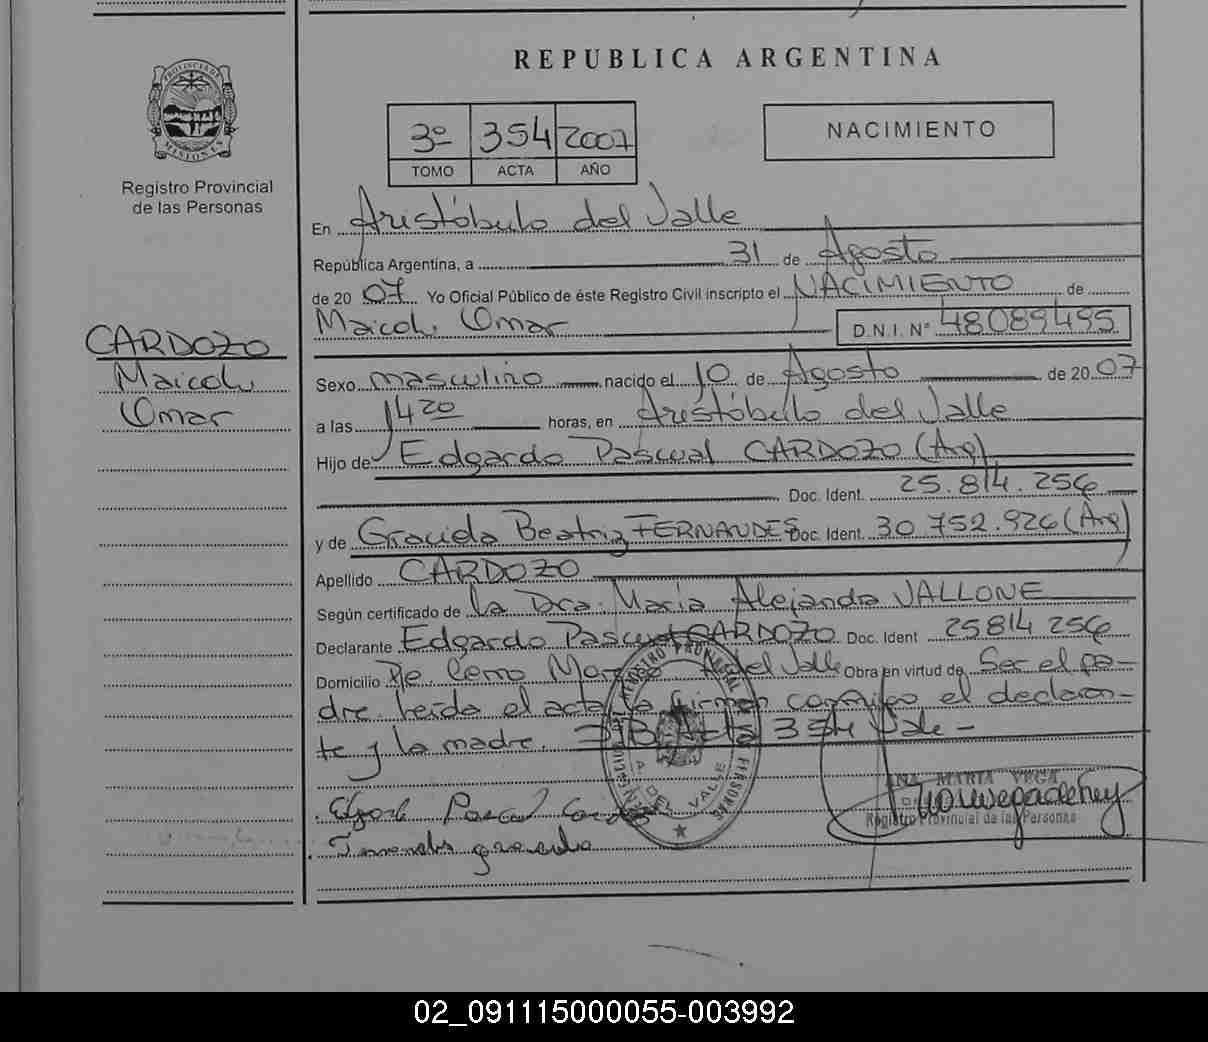 REPUBLICA ARGENTINA
PROVINCIA DE MISIONES
Registro Provincial
de las Personas
3º 354 2007
TOMO ACTA AÑO
NACIMIENTO
En Aristóbulo del Valle
República Argentina, a 31 de Agosto
de 2007 Yo Oficial Público de éste Registro Civil inscripto el NACIMIENTO de
Maicol, Omar D.N.I. Nº 48089495
CARDOZO
Maicol,
Omar
Sexo masculino nacido el 10 de Agosto de 2007
a las 1420 horas, en Aristóbulo del Valle
Hijo de Edgardo Pascual CARDOZO (Arg)
Doc. Ident. 25.814.256
y de Graciela Beatriz FERNANDES Doc. Ident. 30 752.926 (Arg)
Apellido CARDOZO
Según certificado de La Dra. Maria Alejandra VALLONE
Declarante Edgardo Pascual CARDOZO Doc. Ident 25814 256
Domicilio Pje. Cerro A. del Valle Obra en virtud de Ser el pa-
dre. Leida el acta la firman conmigo el declaran-
te y la madre. 354 Vale -
REGISTRO PROVINCIAL DE LAS PERSONAS
A. DEL VALLE
ANA MARIA VEGA
Registro Provincial de las Personas
02_091115000055-003992